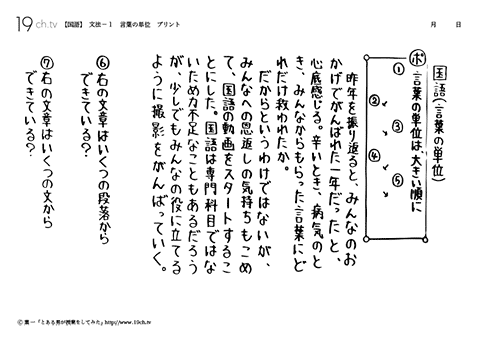 19ch.tv 【国語】 文法-1 言葉の単位 プリント 月 日
国語(言葉の単位)
ポ 言葉の単位は、大きい順に
①
②
③
④
⑤
昨年を振り返ると、みんなのお
かげでがんばれた一年だったと、
心底感じる。辛いとき、病気のと
き、みんなからもらった言葉にど
れだけ救われたか。
だからというわけではないが、
みんなへの恩返しの気持ちもこめ
て、国語の動画をスタートするこ
とにした。国語は専門科目ではな
いため力不足なこともあるだろう
が、少しでもみんなの役に立てる
ように撮影をがんばっていく。
⑥右の文章はいくつの段落から
できている？
⑦右の文章はいくつの文から
できている？
© 葉一「とある男が授業をしてみた」http://www.19ch.tv